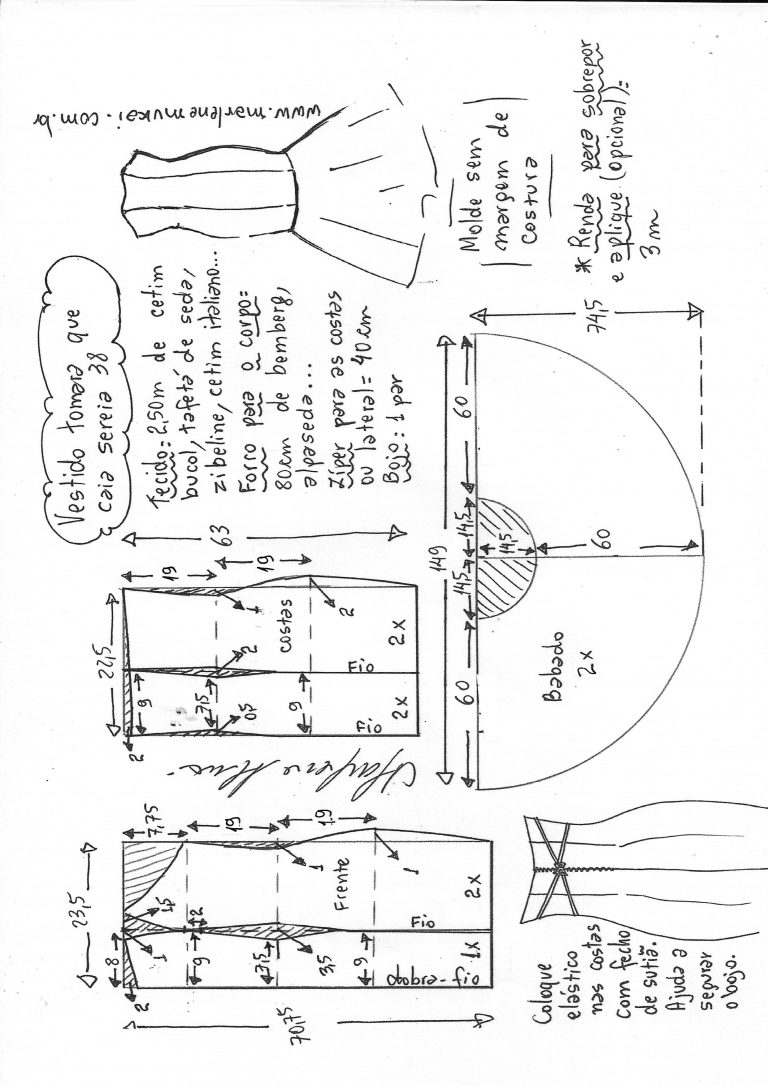 Vestido tomara que
caia sereia 38
Tecido: 2,50m de cetim
bucol, tafetá de seda,
zibeline, cetim italiano...
Forro para o corpo:
80cm de bemberg,
alpaseda...
Zíper para as costas
ou lateral = 40 cm
Bojo: 1 par
www.marlenemukai.com.br
Molde sem
margem de
costura
* Renda para sobrepor
e aplique (opcional):
3 m
23,5
8
2
1
1,5
7,75
9
2
19
7,5
3,5
1
Frente
19
9
1
Fio
2x
1x
Fio-dobra
70,75
22,5
2
9
19
63
2
1
7,5
0,5
costas
19
9
2
Fio
2x
Fio
2x
149
60
14,5
14,5
60
14,5
60
74,5
Babado
2x
Coloque
elástico
nas costas
com fecho
de sutiã.
Ajuda a
segurar
o bojo.